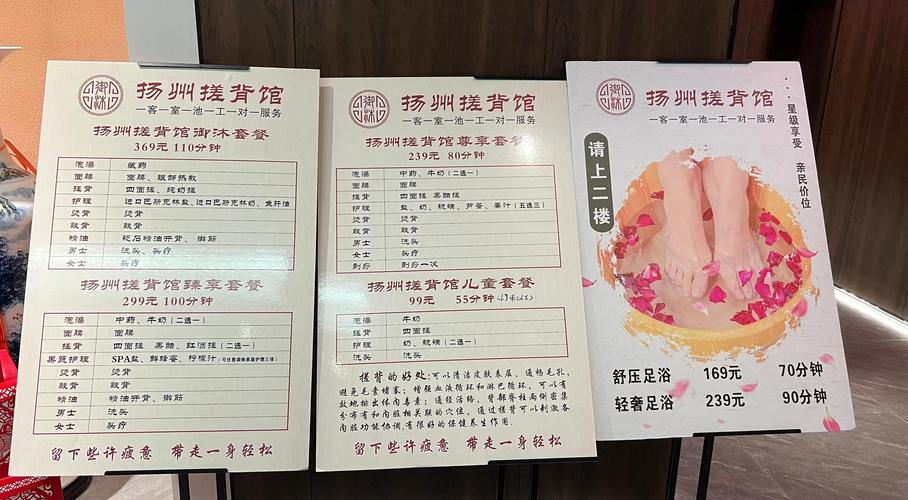 御沐
扬州搓背馆
一客一室一池一工一对一服务
扬州搓背馆御沐套餐
369元 110分钟
泡澡 藏药
面膜 面膜、眼部热敷
搓背 四面搓、纯奶搓
护理 进口巴斯克林盐、进口巴斯克林奶、鱼肝油
烫背 烫背
敲背 敲背
精油 砭石精油开背、撒筋
男士 洗头、头疗
女士 头疗
扬州搓背馆臻享套餐
299元 100分钟
泡澡 中药、牛奶(二选一)
面膜 面膜
搓背 四面搓 黑醋、红酒搓(二选一)
果蔬护理 SPA盐、鲜蜂蜜、柠檬汁
烫背 烫背
敲背 敲背
精油 精油开背、撒筋
男士 洗头
女士 头疗
留下些许疲惫 带走一身轻松
御沐
扬州搓背馆
一客一室一池一工一对一服务
扬州搓背馆尊享套餐
239元 80分钟
泡澡 中药、牛奶(二选一)
面膜 面膜
搓背 四面搓 黑醋搓
护理 盐、奶、硫磺、芦荟、姜汁(五选三)
烫背 烫背
敲背 敲背
男士 洗头
女士 头疗
刮痧 刮痧一次
扬州搓背馆儿童套餐
99元 55分钟
泡澡 牛奶
搓背 四面搓
护理 奶、硫磺(二选一)
洗头 洗头
搓背的好处:可以清洁皮肤表层,通畅毛孔,
避免毛囊堵塞;增强血液循环和淋巴循环,可以有
效地排出体内毒素;通经活络,背部脊柱两侧密集
分布有和内脏相关联的穴位,通过搓背可以刺激各
内脏功能协调,有很好的保健养生作用.
留下些许疲惫 带走一身轻松
御沐
扬州搓背馆
一客一室一池一工一对一服务
星级享受 亲民价位
请上二楼
舒压足浴 169元 70分钟
轻奢足浴 239元 90分钟